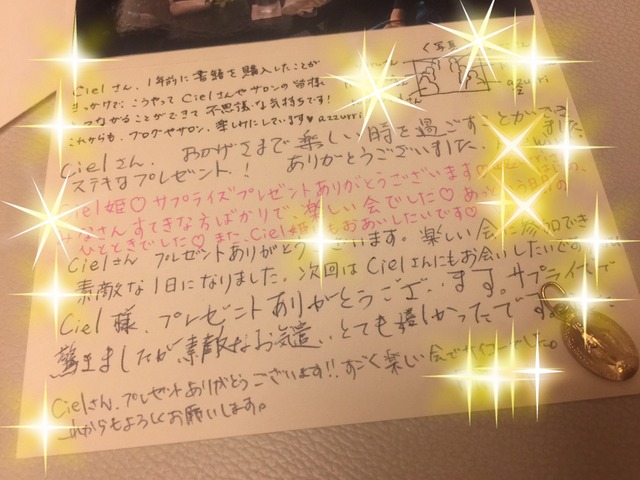 Cielさん、1年前に書籍を購入したことが
きっかけで、こうやってCielさんやサロンの皆様
つながることができて不思議な気持ちです!
これからも、ブログやサロン、楽しみにしています♥azzurri
く写真
azurri
Cielさん、おかげさまで楽しい時を過ごすことができました。
ステキなプレゼント!ありがとうございました。
Ciel姫♡サプライズプレゼントありがとうございます♡
みなさんすてきな方ばかりで、楽しい会でした♡あっという間の
ひとときでした♡また、Ciel姫にもおあいしたいです♡
Cielさん プレゼントありがとうございます。楽しい会に参加でき
素敵な1日になりました。次回はCielさんにもお会いしたいです
Ciel様、プレゼントありがとうございます。サプライズで
驚きましたが素敵なお気遣い、とても嬉しかったです。
Cielさん、プレゼントありがとうございます!!すごく楽しい会でサイコーでした。
これからもよろしくお願いします。